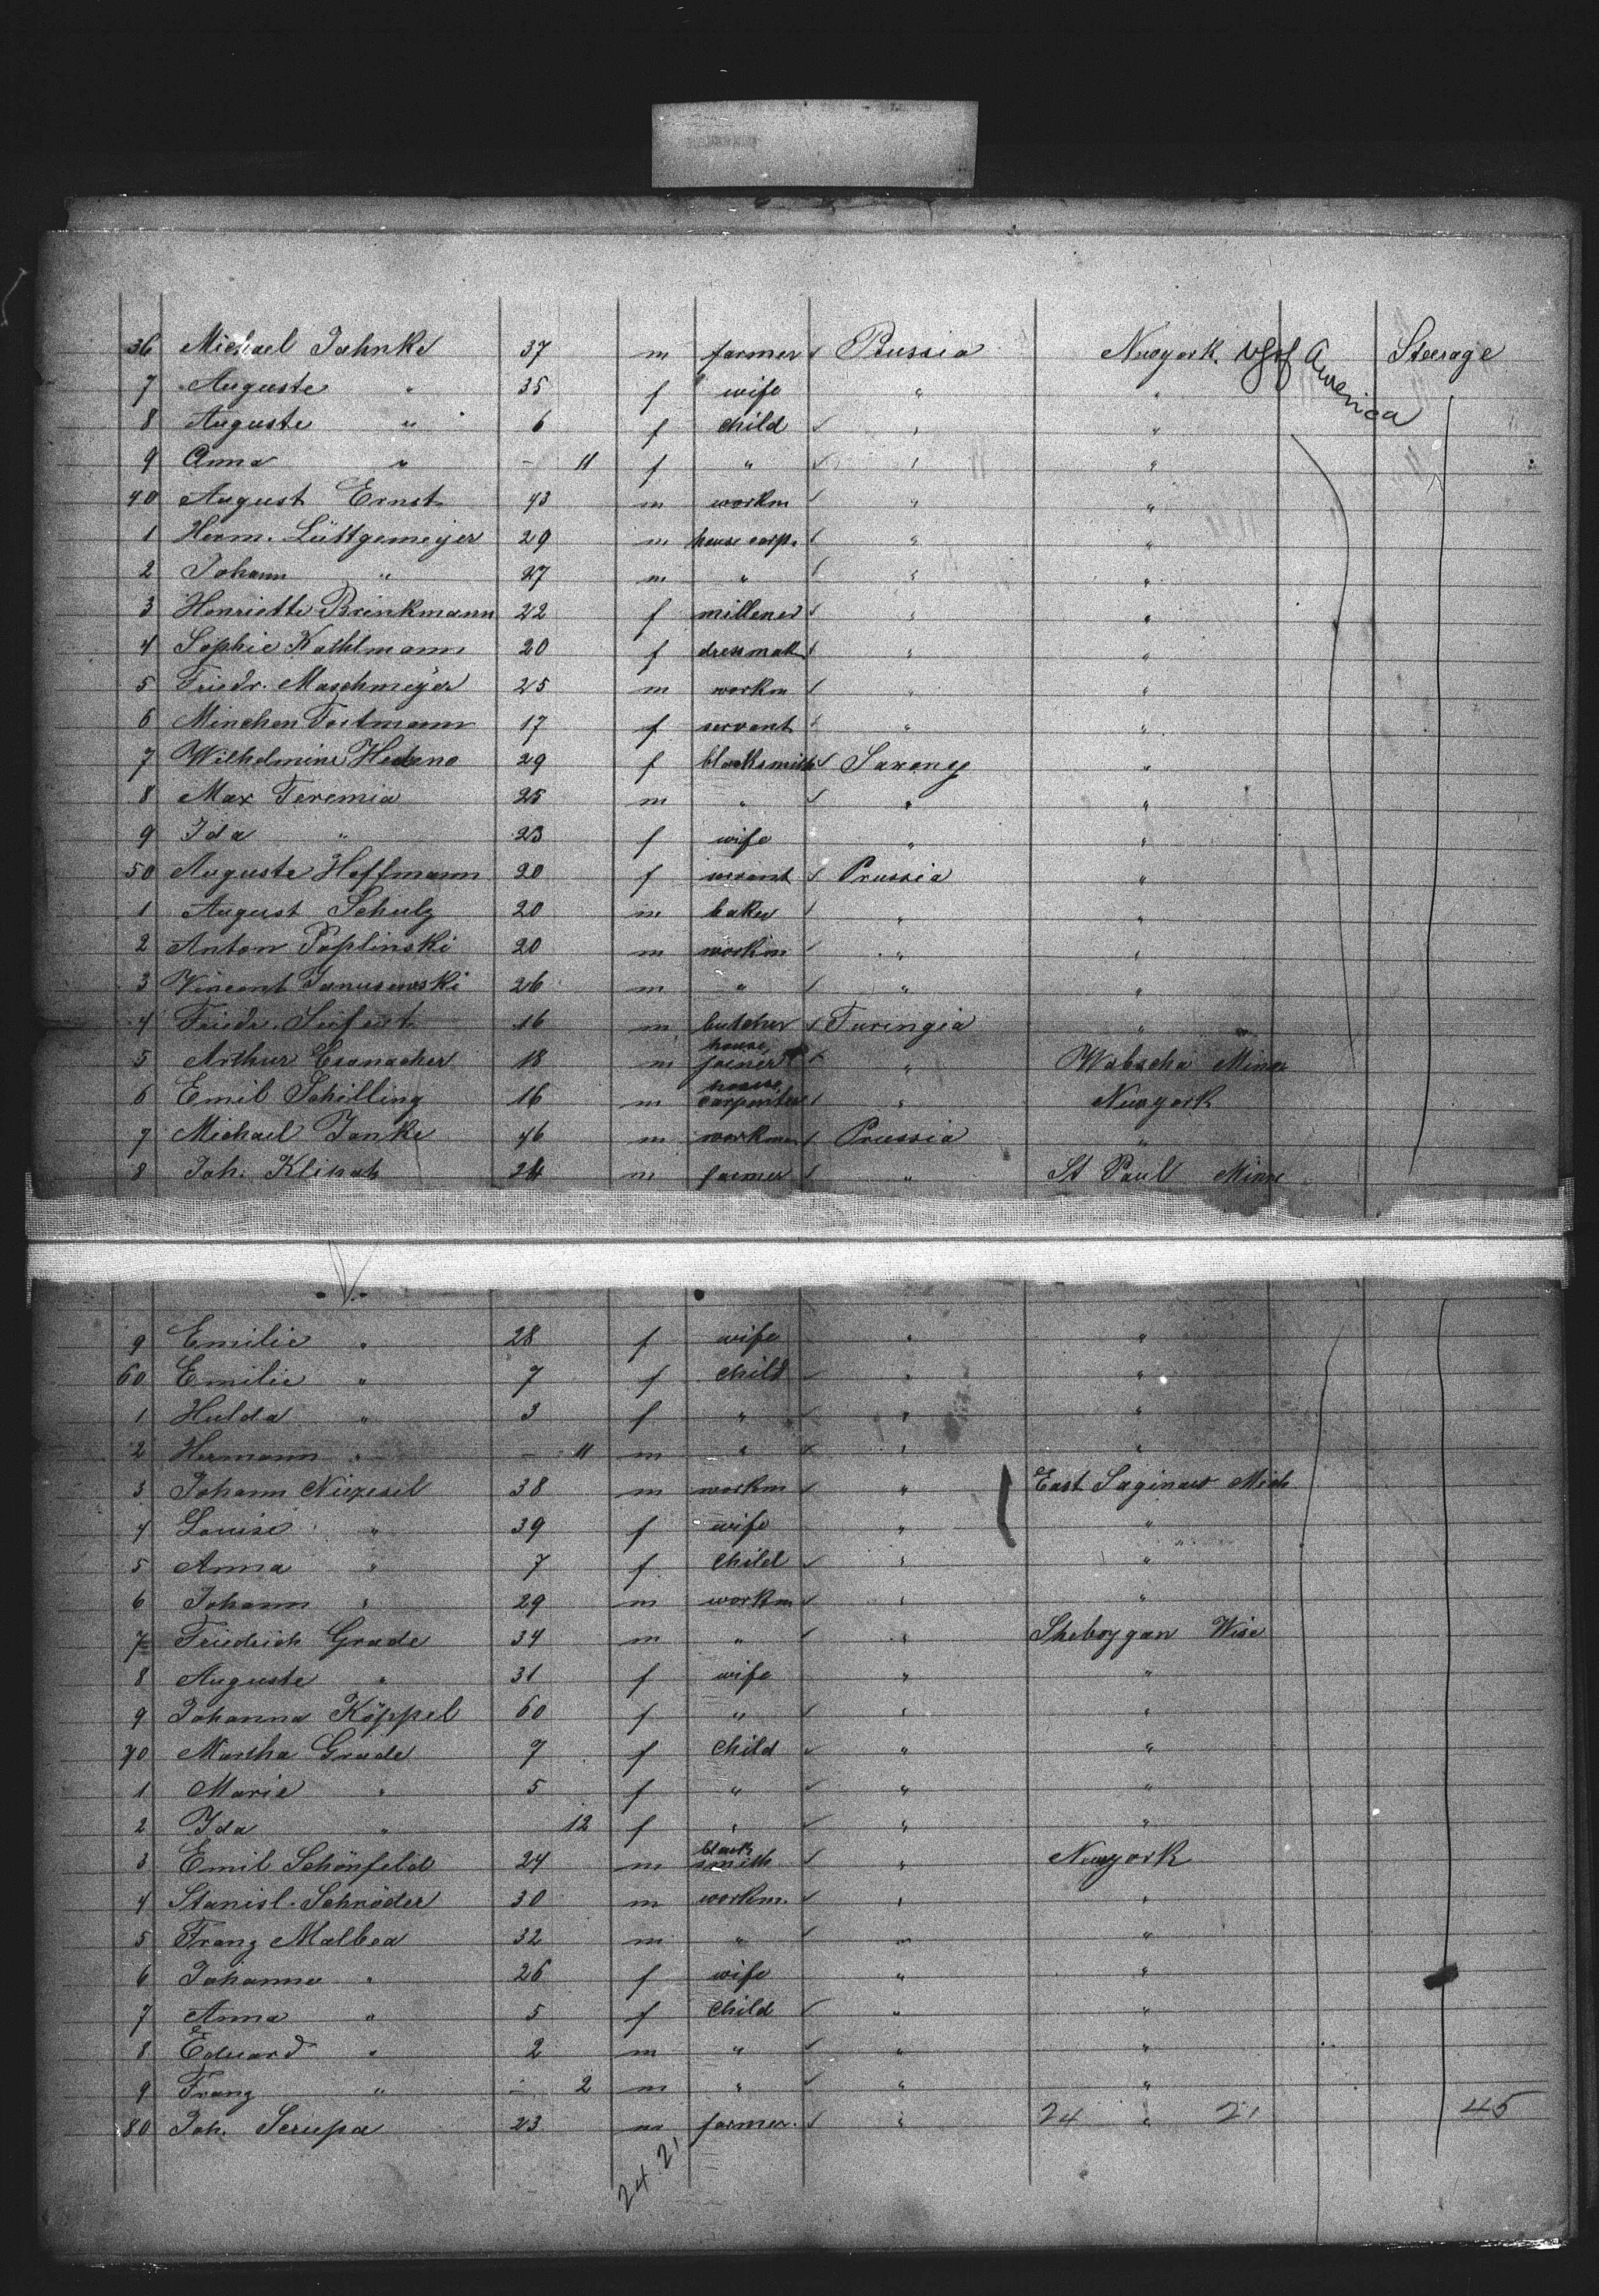 36 Michael Jahnke 37 m farmer Prussia Newyork. USof America Steerage
7 Auguste " 35 f wife " "
8 Auguste " 6 f child " "
9 Anna " - 11 f " " "
40 August Ernst 43 m workm " "
1 Herm. Lüttgemeyer 29 m house carp. " "
2 Johann " 27 m " " "
3 Henriette Brinkmann 22 f millener " "
4 Sophie Kathlmann 20 f dressmak " "
5 Friedr. Maschmeyer 25 m workm " "
6 Minchen Tostmann 17 f servant " "
7 Wilhelmine 29 f blacksmith Saxony "
8 Max Jeremia 25 m " " "
9 Ida " 23 f wife " "
50 Auguste Hoffmann 20 f servant Prussia "
1 August Schulz 20 m baker " "
2 Anton Poplinski 20 m workm " "
3 Vincent Janusewski 26 m " " "
4 Friedr. Seifert 16 m butcher Turingia "
5 Arthur Esanacher 18 m house joiner " Wabscha Minn
6 Emil Schilling 16 m house carpenter " Newyork
7 Michael Janke 46 m workman Prussia "
8 Joh. 24 m farmer " St Paul Minn
9 Emilie " 28 f wife " "
60 Emilie " 7 f child " "
1 Hulda " 3 f " " "
2 Hermann " - 11 m " " "
3 Johann Niezesil 38 m workm " East Saginaw Mich
4 Louise " 39 f wife " "
5 Anna " 7 f child " "
6 Johann " 29 m workm " "
7 Friedrich Grade 34 m " " Sheboygan Wisc
8 Auguste " 31 f wife " "
9 Johanna Köppel 60 f " " "
70 Martha Grade 7 f child " "
1 Marie " 5 f " " "
2 Ida " 12 f " " "
3 Emil Schönfeld 24 m black smith " Newyork
4 Stanisl. Schröder 30 m workm. " "
5 Franz Malboa 32 m " " "
6 Johanna " 26 f wife " "
7 Anna " 5 f child " "
8 Eduard " 2 m " " "
9 Franz " - 2 m " " "
80 Joh. Serupa 23 m farmer. " 24 " 21 45
24 21